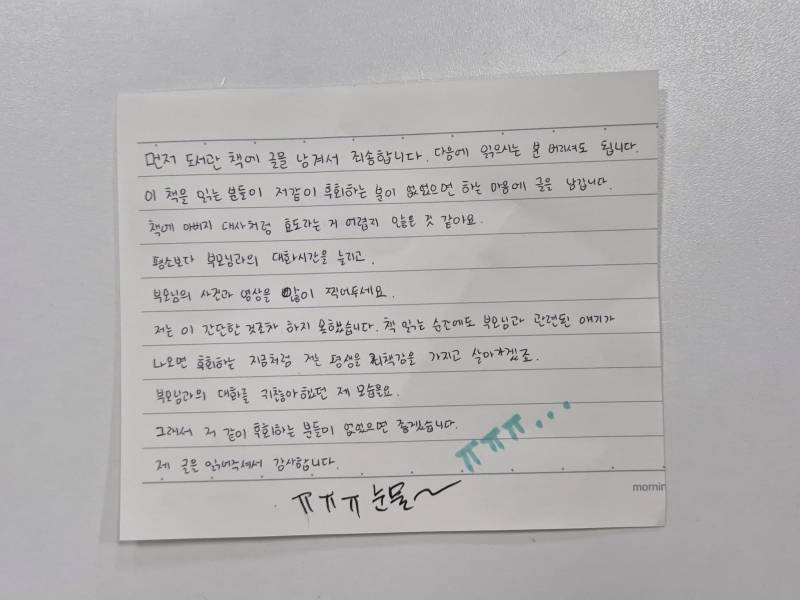 먼저 도서관 책에 글을 남겨서 죄송합니다. 다음에 읽으시는 분 버리셔도 됩니다.
이 책을 읽는 분들이 저같이 후회하는 분이 없었으면 하는 마음에 글을 남깁니다.
책에 아버지 대사처럼 효도라는 거 어렵지 않은 것 같아요.
평소보다 부모님과의 대화시간을 늘리고.
부모님의 사진과 영상을 많이 찍어두세요.
저는 이 간단한 것조차 하지 못했습니다. 책 읽는 순간에도 부모님과 관련된 얘기가
나오면 후회하는 지금처럼 저는 평생을 죄책감을 가지고 살아가겠죠.
부모님과의 대화를 귀찮아했던 제 모습을요.
그래서 저 같이 후회하는 분들이 없었으면 좋겠습니다.
제 글을 읽어주셔서 감사합니다.
ㅠㅠㅠ...
ㅠㅠㅠ 눈물~
mornin